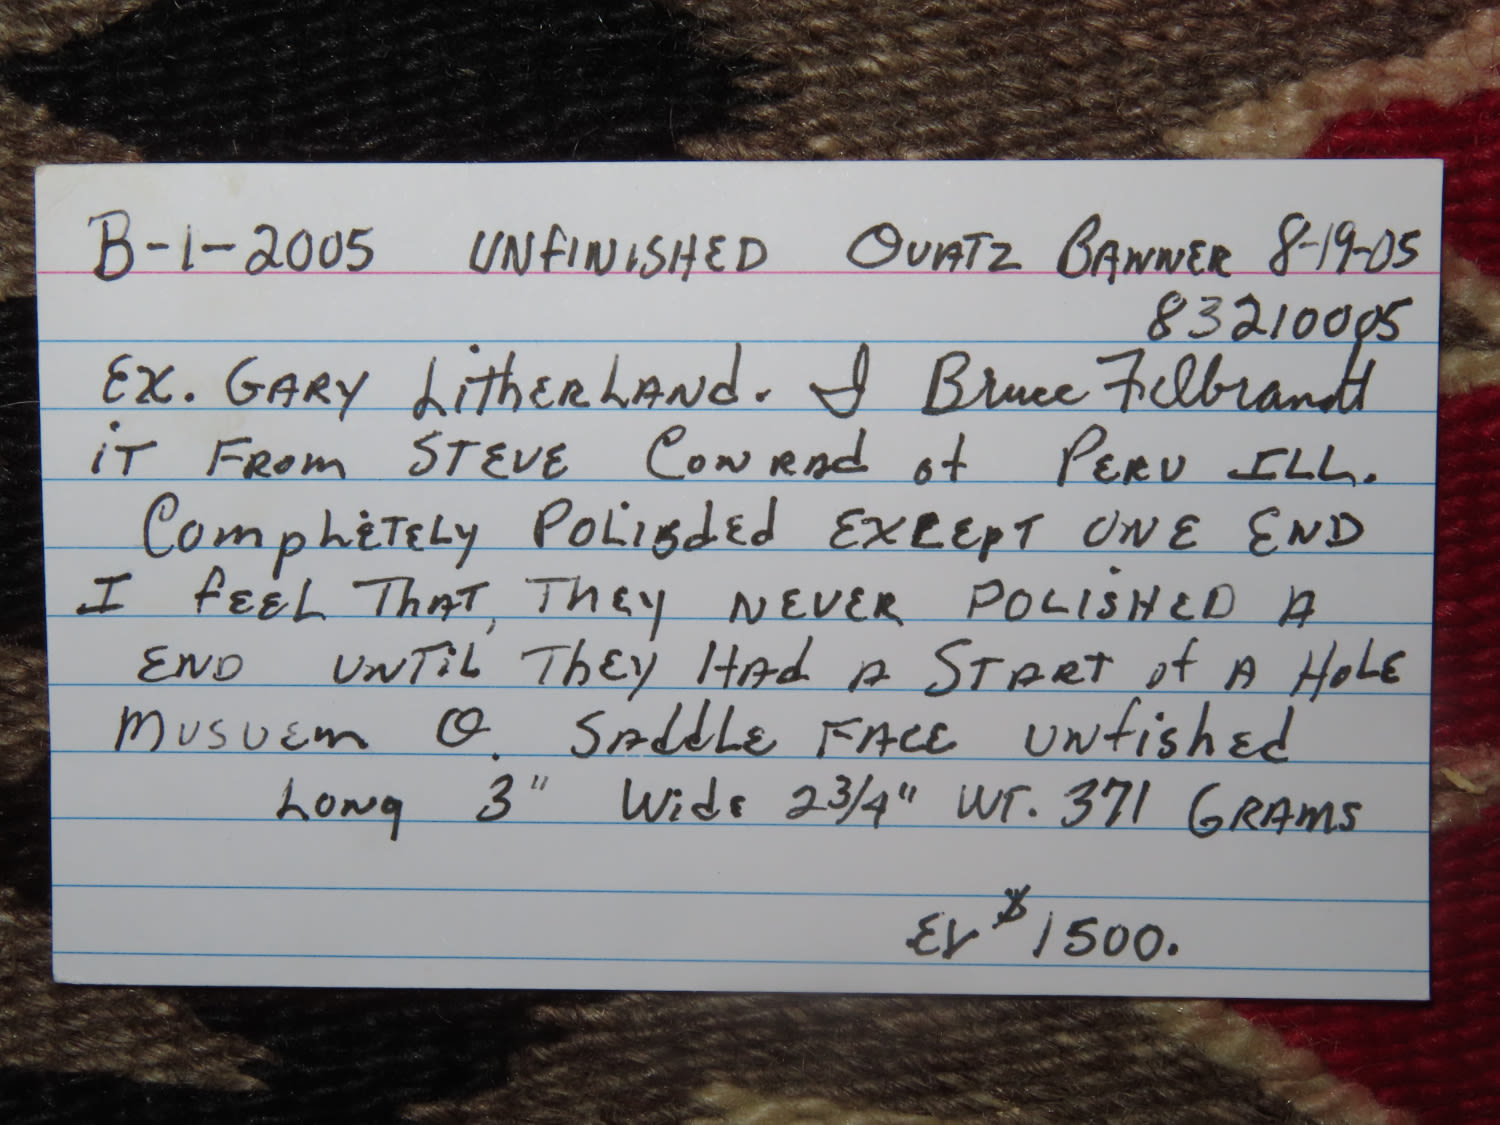 B-1-2005 UNFINISHED QUATZ BANNER 8-19-05
83210005
EX. GARY LitHERLAND. I Bruce Filbrandt
iT FROM STEVE CONRAD of PERU ILL.
COMPLETELY POLISDED EXCEPT ONE END
I FEEL THAT, THEY NEVER POLISHED A
END UNTIL THEY HAD A START of A HOLE
MUSUEM Q. SADDLE FACE UNfiSHED
LONG 3" WIDE 2 3/4" WT. 371 GRAMS
EV $1500.